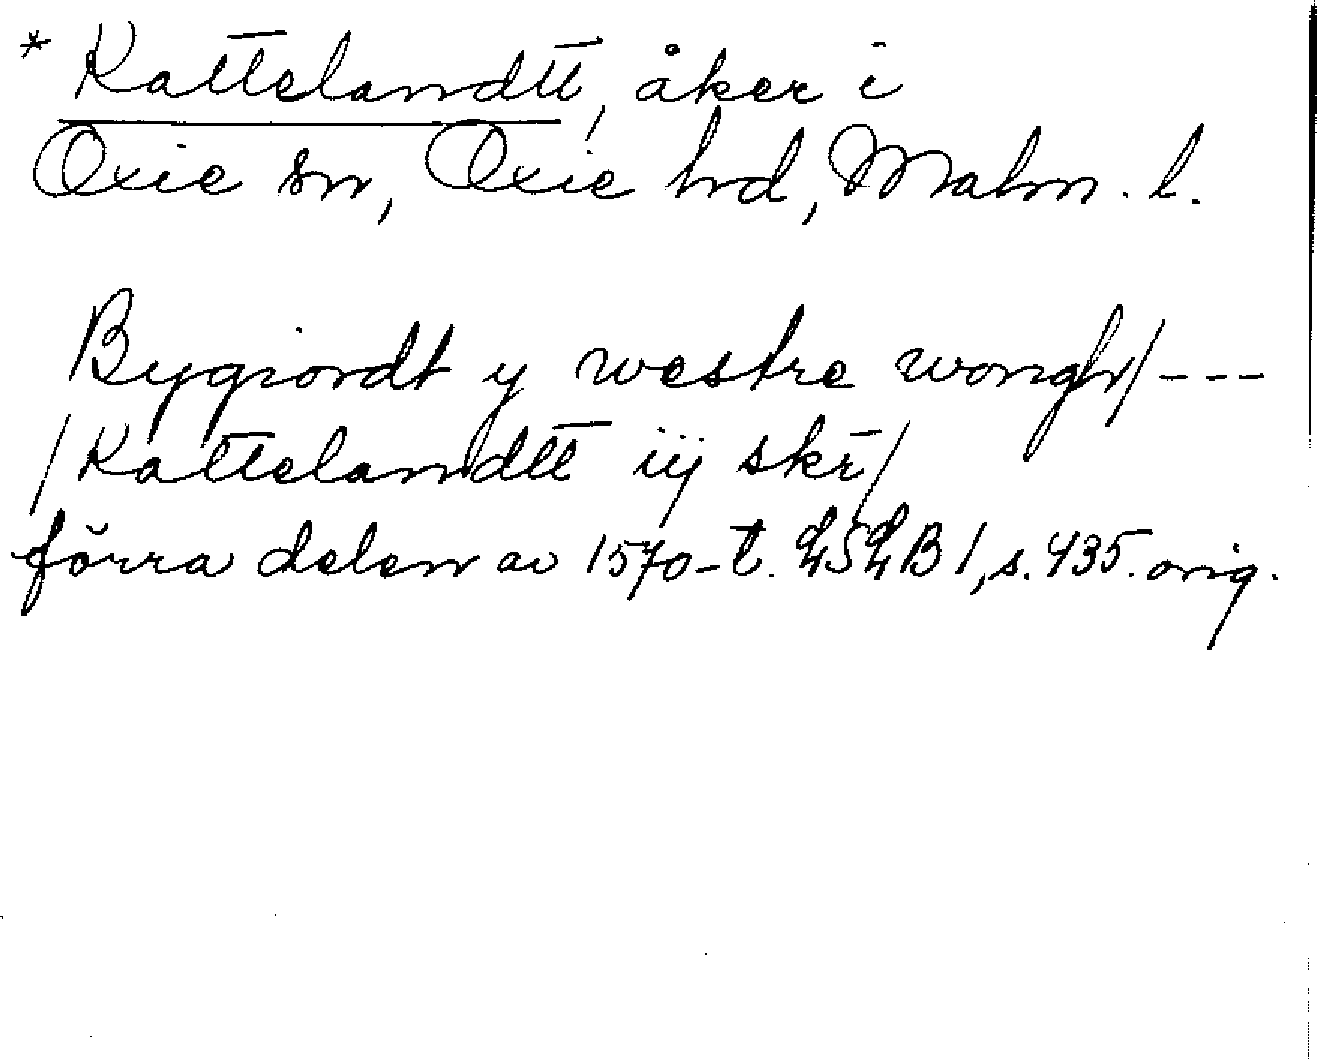 * Kattelandtt, åker i
Oxie sn, Oxie hd, Malm. l.
Bygiordt y westre wongh/---
/Kattelandtt iij skr̄/
förra delen av 1570-t. LSLB 1, s. 435. orig.